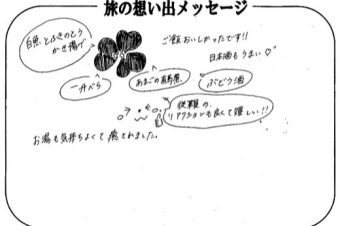 旅の想い出メッセージ
白魚とふきのとう
かき揚げ
ご飯おいしかったです!!
日本酒もうまい♡
一升べら
あまごの
ぶどう酒
従業員の
リアクションも良くて嬉しい!!
お湯も気持ちよくて癒されました。